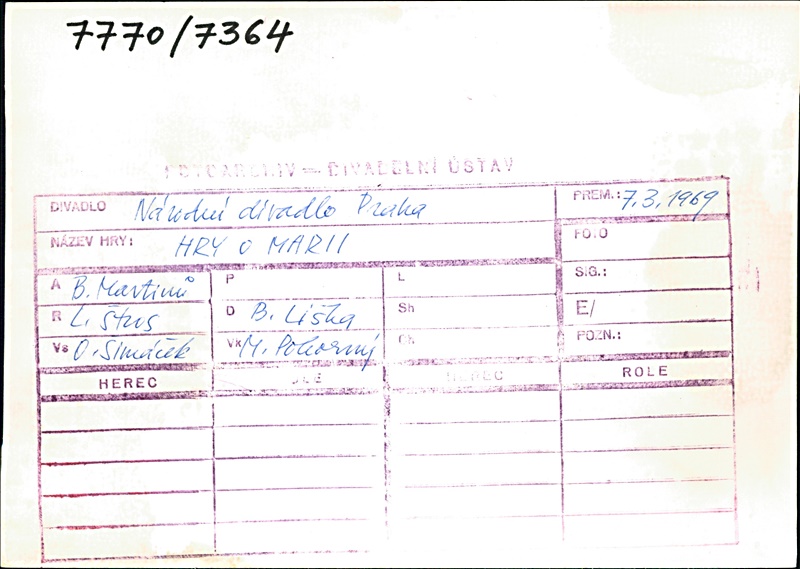 7770/7364
FOTOARCHIV — DIVADELNÍ ÚSTAV
DIVADLO Národní divadlo Praha PREM.: 7.3.1969
NÁZEV HRY: HRY O MARII FOTO
A B. Martinů P L SIG.:
R L. Štros D B. Liška Sh E/
Vs O. Šimáček Vx M. Pokorný Ch POZN.:
HEREC ROLE HEREC ROLE